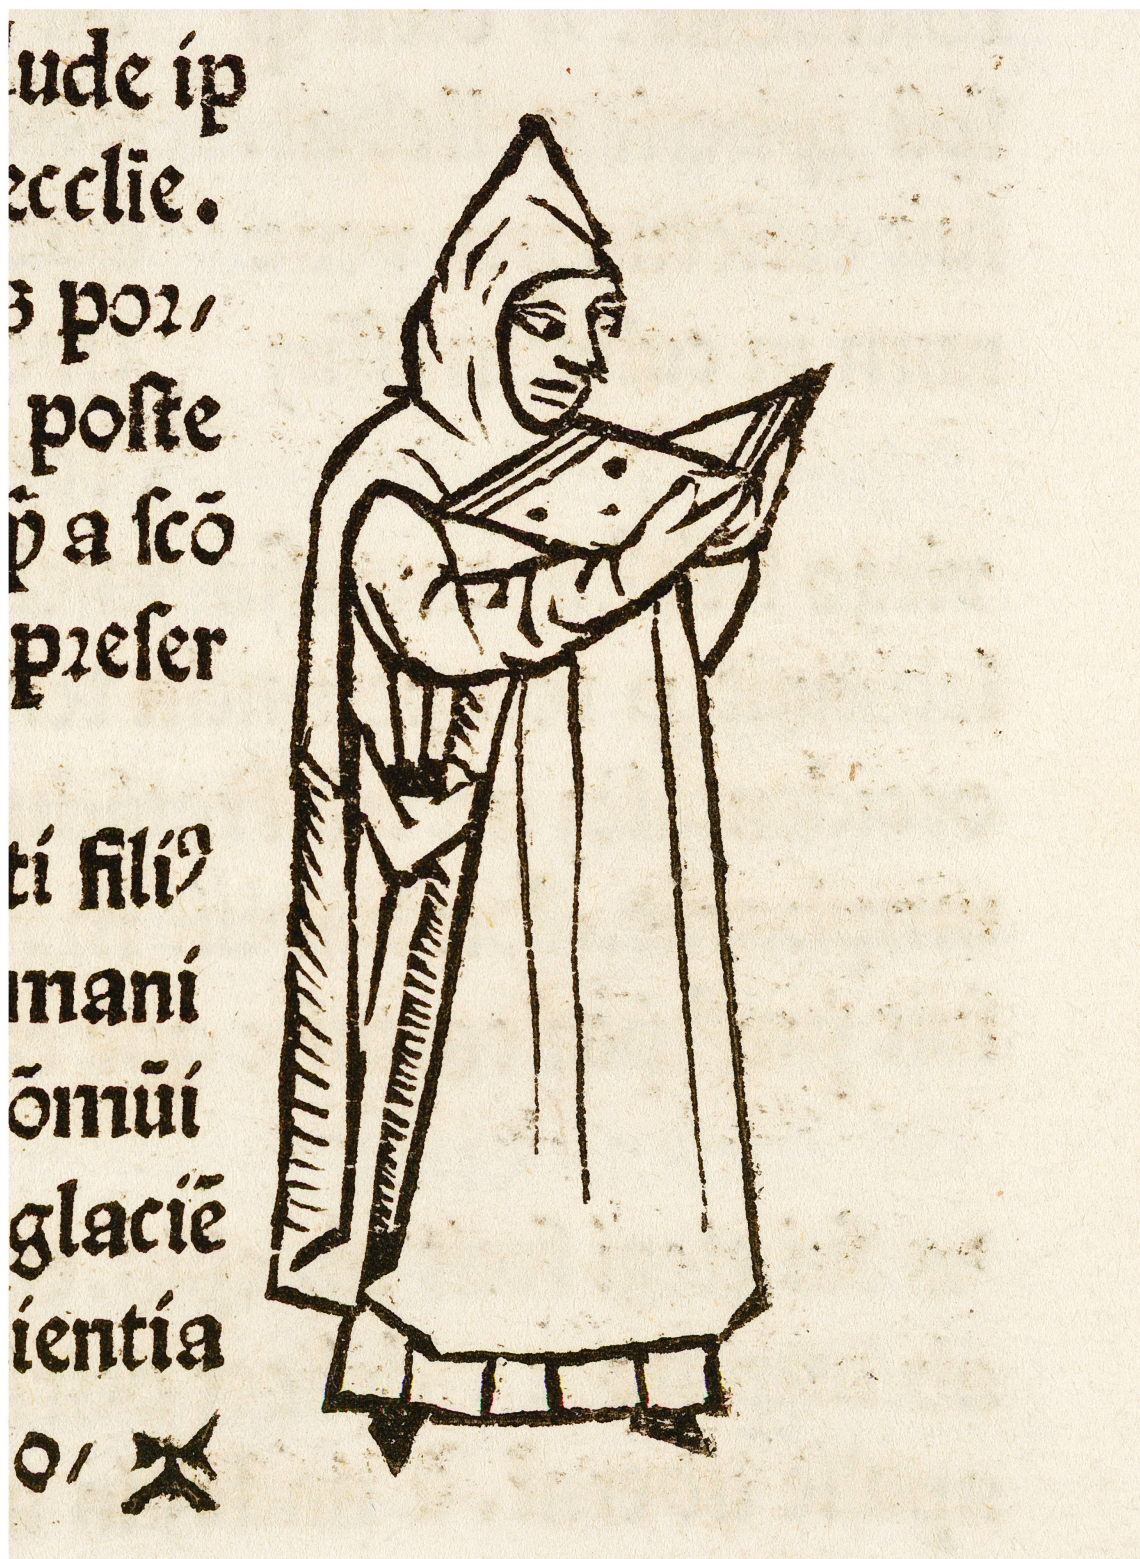 lude ip
ecclīe.
s por⸗
poste
ꝙ̄ a ſcō
preſer
ti filiꝰ
mani
ōmūi
glaciē
ientia
o/